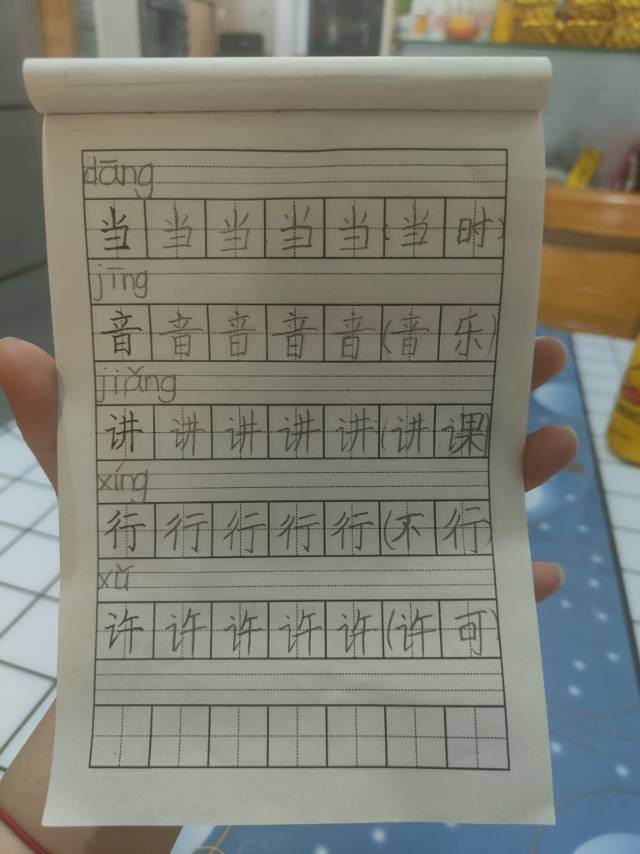 dāng
当当当当当(当时)
jīng
音音音音音(音乐)
jiǎng
讲讲讲讲讲(讲课)
xíng
行行行行行(不行)
xǔ
许许许许许(许可)